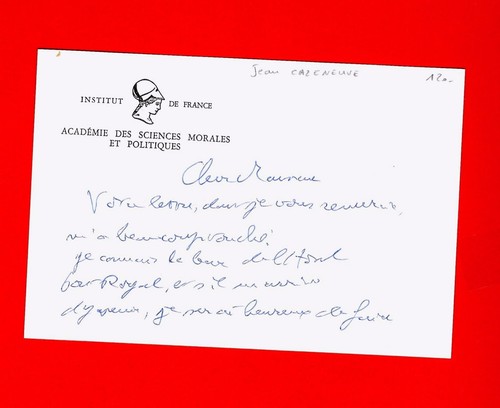 Jean CAZENEUVE 120.-
INSTITUT DE FRANCE
ACADÉMIE DES SCIENCES MORALES
ET POLITIQUES
Cher Monsieur
Votre lettre, dont je vous remercie,
m'a beaucoup touché.
je connais le bar de l'Hotel
Port Royal, et s'il m'arrive
d'y venir, je serai heureux de faire